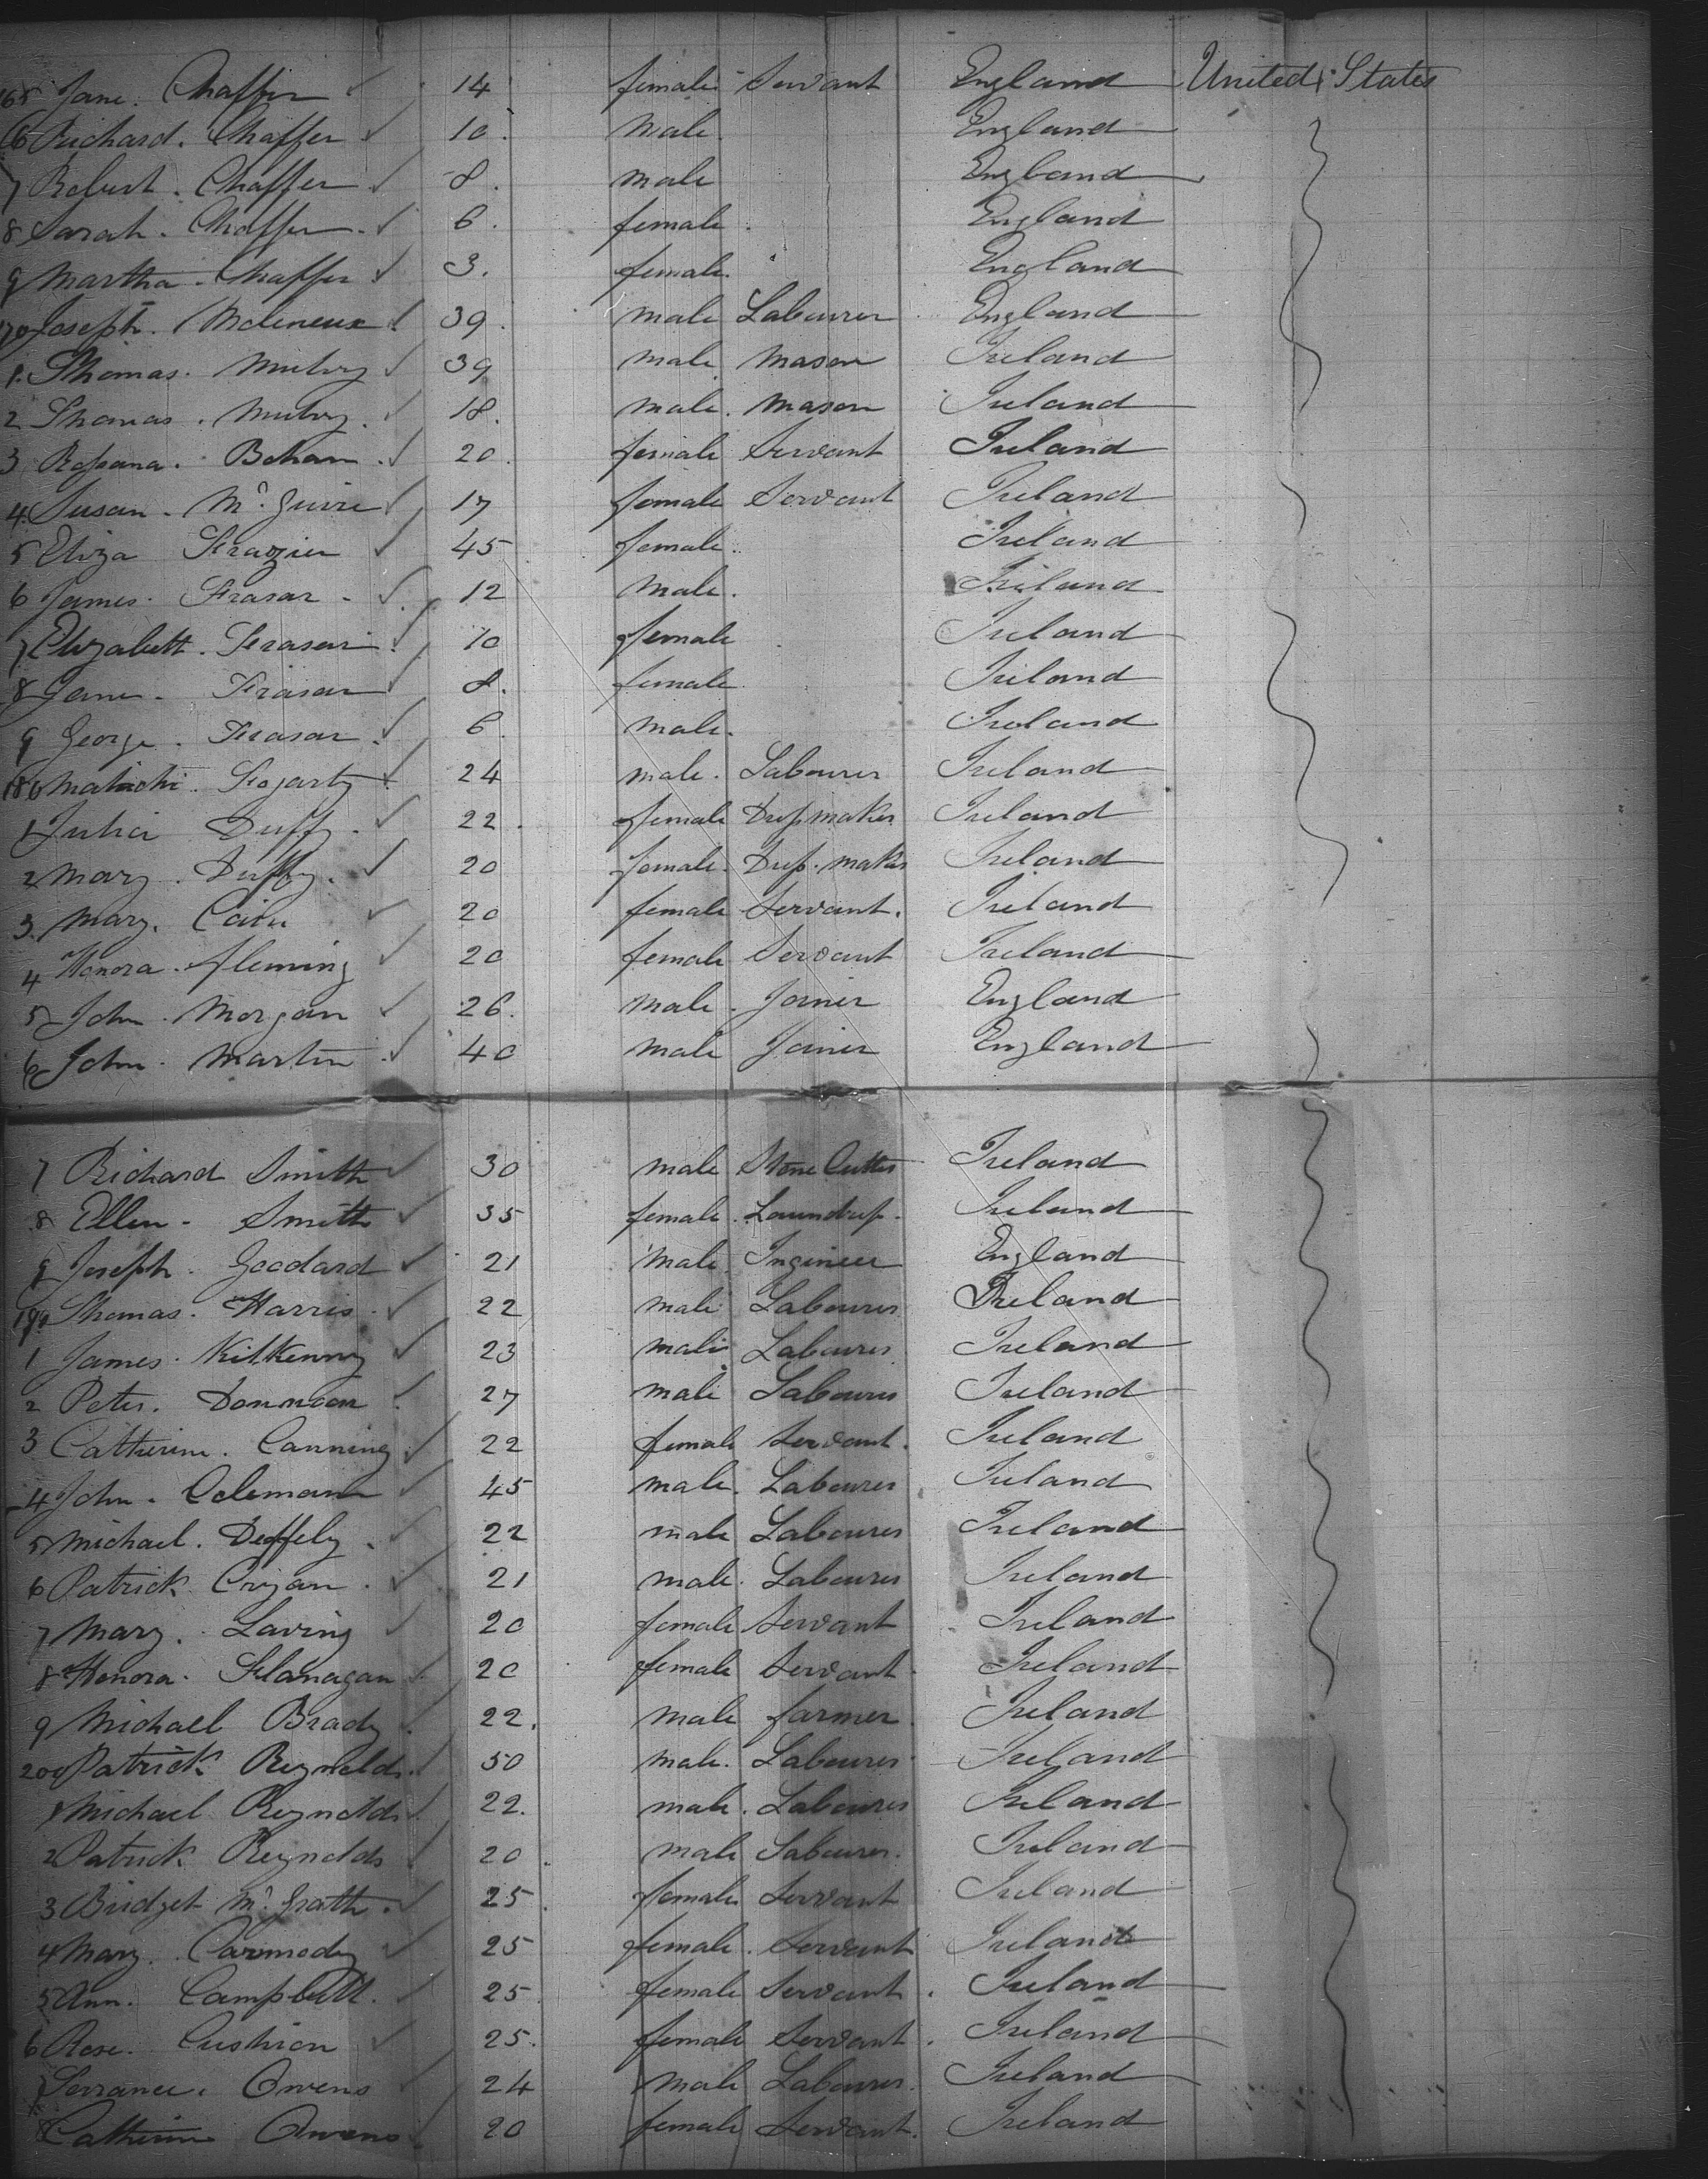 165 Jane. Chaffer 14 female Servant England United States
6 Richard. Chaffer 10 male. England
7 Robert. Chaffer 8. male England
8 Sarah. Chaffer. 6. female England
9 Martha. Chaffer 3. female. England
170 Joseph. Moleneux 39. male Labourer England
1. Thomas. 39 male Mason Ireland
2 Thomas. 18. male. Mason Ireland
3 Rosana. Behan 20. female Servant Ireland
4 Susan. Mc. Guire 17 female Servant Ireland
5 Eliza Frazier 45 female. Ireland
6 James. Frasar. 12 male. Ireland
7 Elizabeth. Frasar. 10 female Ireland
8 Jane. Frasar 8. female Ireland
9 George. Frasar. 6. male. Ireland
180 Malachi. Fogarty 24 male. Labourer Ireland
1 Julia Duffy. 22. female Dressmaker Ireland
2 Mary. Duffy. 20 female. Dress. maker Ireland
3. Mary. Cain 20 female Servant. Ireland
4 Honora. Fleming 20 female Servant Ireland
5 John. Morgan 26. male. Joiner England
6 John. Martin 40 male Joiner England
7 Richard Smith 30 male Stone Cutter Ireland
8 Ellen. Smith 35 female. Laundress. Ireland
9 Joseph. Goodard 21 male Ingineer England
190 Thomas. Harris. 22 male Labourer Ireland
1 James. Kilkenny 23 male Labourer Ireland
2 Peter. 27 male Labourer Ireland
3 Catherine. Canning 22 female Servant. Ireland
4 John. Colemann 45 male. Labourer Ireland
5 Michael. Deffely. 22 male Labourer Ireland
6 Patrick Crijan. 21 male. Labourer Ireland
7 Mary. Laving 20 female Servant Ireland
8 Honora. Flanagan 20 female Servant. Ireland
9 Michael Brady. 22. male farmer. Ireland
200 Patrick Reynolds. 50 male. Labourer Ireland
1 Michael Reynolds 22. male. Labourer Ireland
2 Patrick Reynolds 20. male Labourer. Ireland
3 Bridget Mc. Grath. 25. female Servant Ireland
4 Mary. Carmody 25 female. Servant Ireland
5 Ann. Campbell. 25 female Servant. Ireland
6 Rose. Cushion 25. female Servant. Ireland
7 Terrance. Owens 24 male Labourer. Ireland
8 Catherine Owens. 20 female Servant. Ireland